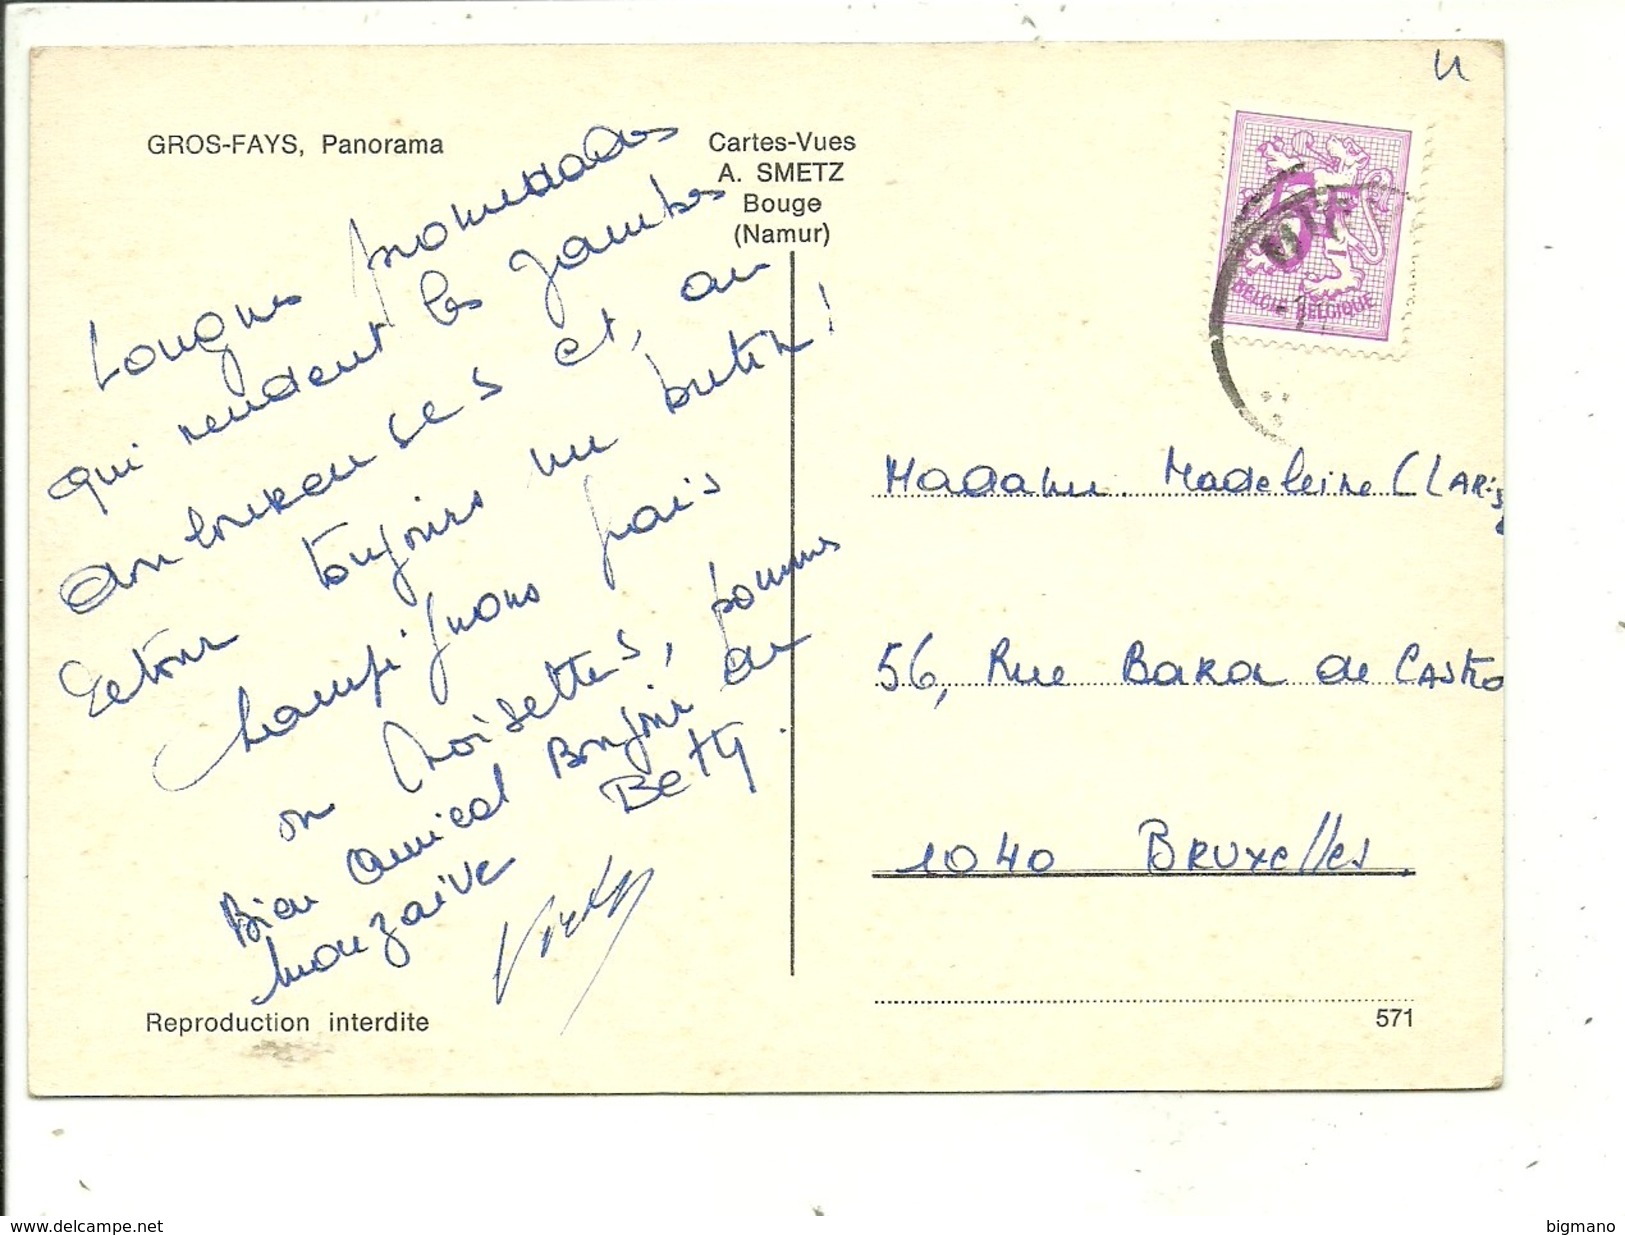 GROS-FAYS, Panorama
Cartes-Vues
A. SMETZ
Bouge
(Namur)
Longues promenades
qui rendent les jambes
et, au
toujours un butin!
champignons frais
ou noisettes, pommes
Bien amical Bonjour du
Betty.
BELGIE-BELGIQUE
Madame. Madeleine CLARis
56, Rue BaRa de CAStRo
1040 BRUxelles.
Reproduction interdite
571
www.delcampe.net
bigmano